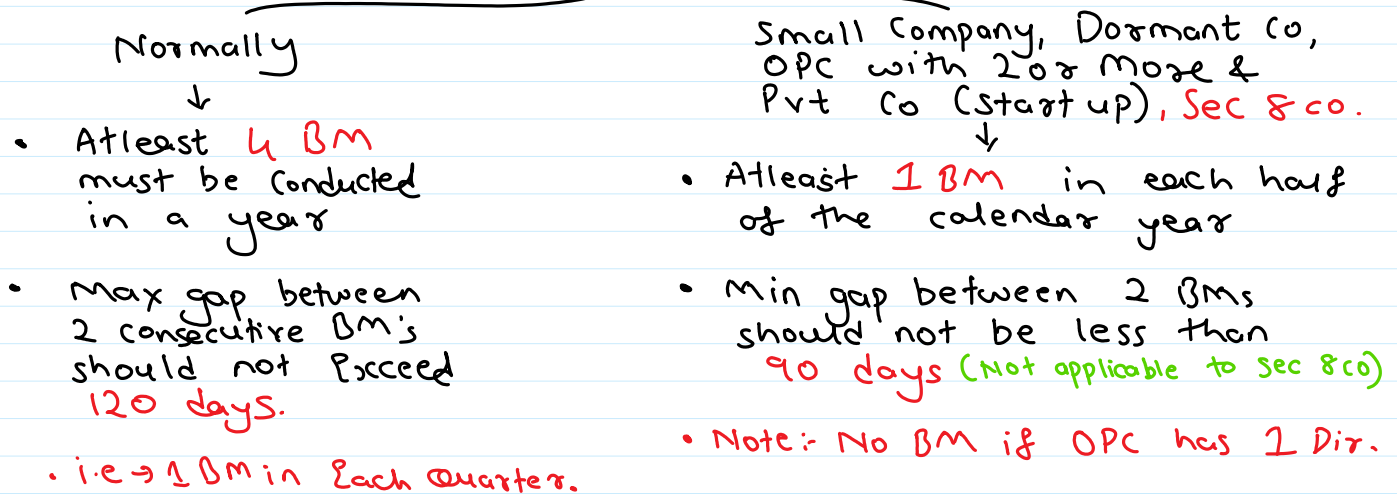 Normally
• Atleast 4 BM
must be Conducted
in a year
• Max gap between
2 consecutive BM's
should not Exceed
120 days.
• i.e → 1 BM in Each Quarter.
Small Company, Dormant Co,
OPC with 2 or More &
Pvt Co (Start up), Sec 8 co.
• Atleast 1 BM in each half
of the calendar year
• Min gap between 2 BMs
should not be less than
90 days (Not applicable to Sec 8 co)
• Note:- No BM if OPC has 1 Dir.